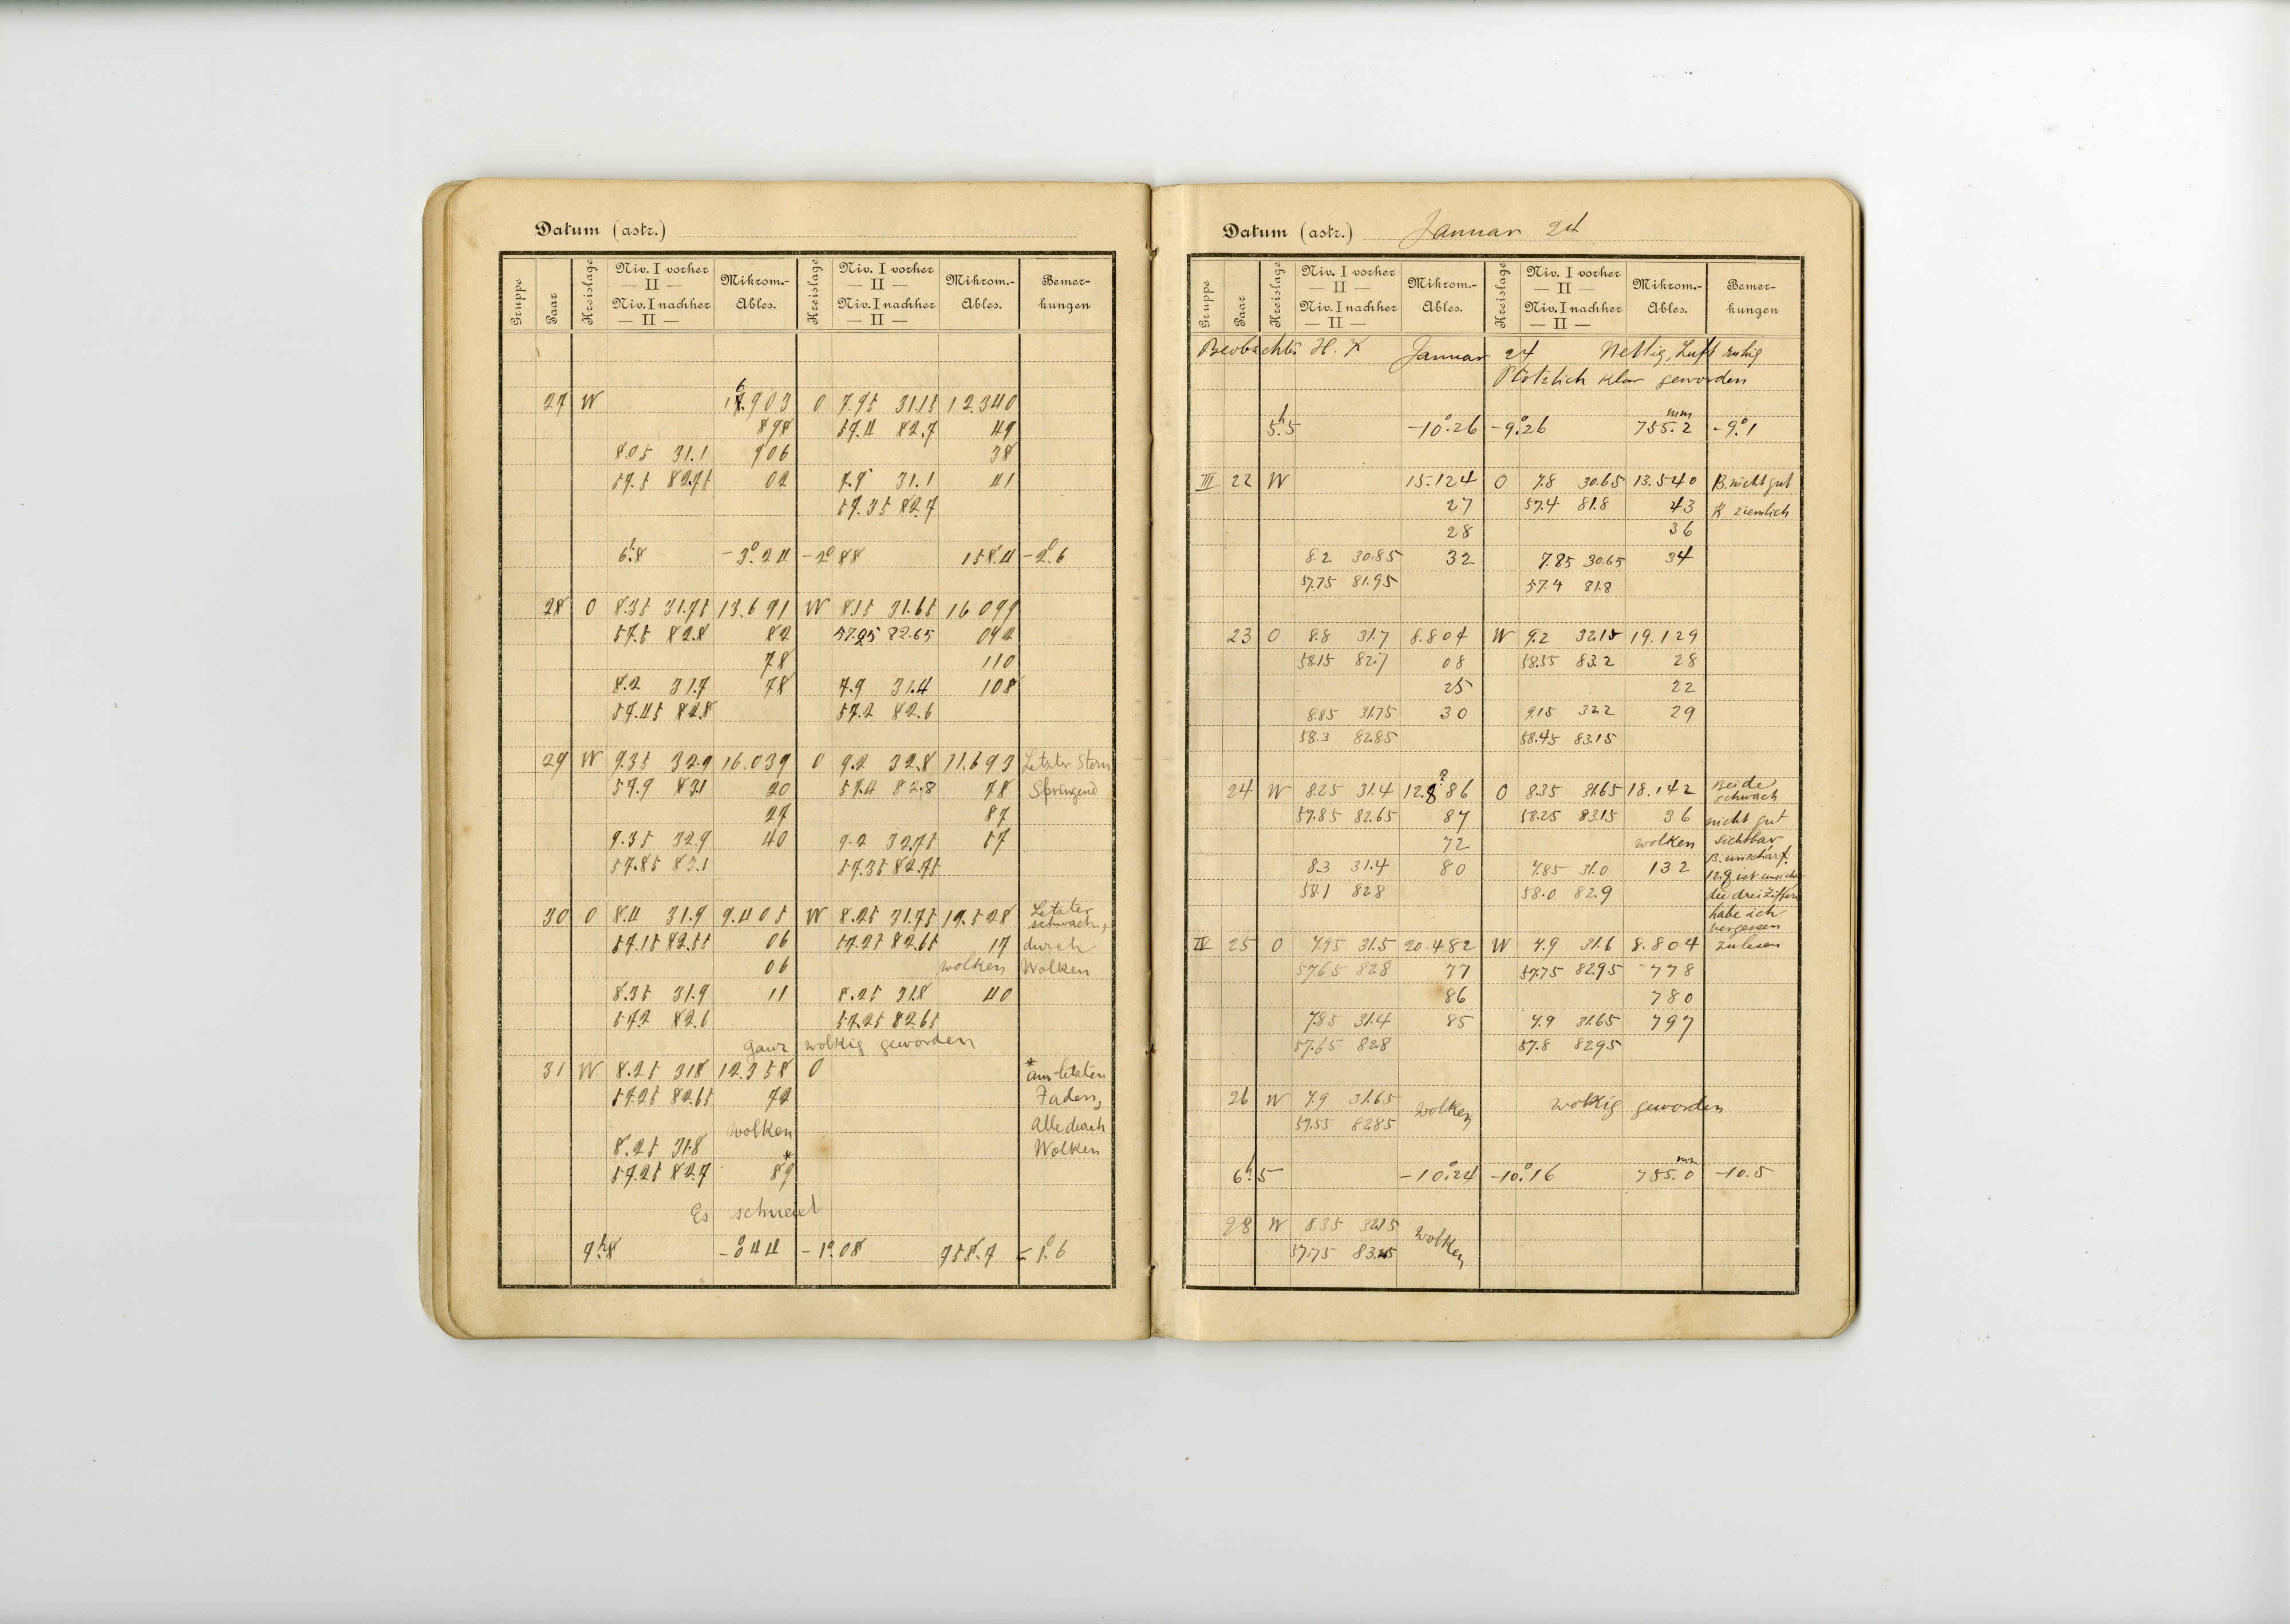 Datum (astr.)
Gruppe Paar Kreislage Niv. I vorher Mikrom.- Kreislage Niv. I vorher Mikrom.- Bemer-
— II — — II —
Niv. I nachher Ables. Niv. I nachher Ables. kungen
— II — — II —
6
27 W 17.903 O 7.95 31.15 12.340
898 57.4 82.7 49
8.05 31.1 906 38
57.5 82.75 02 7.9 31.1 41
57.35 82.7
6.8 -3°.24 -2°88 158.4 -2°.6
28 O 8.35 31.75 13.691 W 8.15 31.65 16 099
57.5 82.8 82 57.25 82.65 092
78 110
8.2 31.7 78 7.9 31.4 108
57.45 82.8 57.2 82.6
29 W 9.35 32.9 16.039 O 9.2 32.8 11.693 Letzter Stern
57.9 83.1 20 57.4 82.8 78 Springend
27 87
9.35 32.9 40 9.2 32.75 57
57.85 83.1 57.35 82.75
30 O 8.4 31.9 9.405 W 8.25 31.75 19.528 Letzter
schwach,
57.15 82.55 06 57.25 82.65 17 durch
06 wolken Wolken
8.35 31.9 11 8.25 31.8 40
57.2 82.6 57.25 82.65
ganz wolkig geworden
31 W 8.25 31.8 12.358 O *am letzten
57.25 82.65 72 Faden,
wolken Alle durch
8.25 31.8 Wolken
57.25 82.7 *89
Es schneiet
7h.8 -1°.08 758.7 -1°.6
Datum (astr.) Januar 24
Gruppe Paar Kreislage Niv. I vorher Mikrom.- Kreislage Niv. I vorher Mikrom.- Bemer-
— II — — II —
Niv. I nachher Ables. Niv. I nachher Ables. kungen
— II — — II —
Beobacht: H. K Januar 24 Neblig, Luft ruhig
Plötzlich klar geworden
5h.5 -10°.26 -9°.26 755.2 mm -9°.1
III 22 W 15.124 O 7.8 30.65 13.540 B. nicht gut
27 57.4 81.8 43 K. ziemlich
28 36
8.2 30.85 32 7.85 30.65 34
57.75 81.95 57.4 81.8
23 O 8.8 31.7 8.804 W 9.2 32.15 19.129
58.15 82.7 08 58.55 83.2 28
25 22
8.85 31.75 30 9.15 32.2 29
58.3 82.85 58.45 83.15
24 W 8.25 31.4 12.886 O 8.35 31.65 18.142 Beide
schwach
57.85 82.65 87 58.25 83.15 36 nicht gut
72 wolken sichtbar
B. unscharf.
8.3 31.4 80 7.85 31.0 132
58.1 82.8 58.0 82.9 die drei Ziffern
habe ich
vergessen
IV 25 O 7.95 31.5 20.482 W 7.9 31.6 8.804 zu lesen
57.65 82.8 77 57.75 82.95 778
86 780
7.85 31.4 85 7.9 31.65 797
57.65 82.8 57.8 82.95
26 W 7.9 31.65 wolken wolkig geworden
57.55 82.85
6h.5 -10°.24 -10°.16 755.0 mm -10.5
28 W 8.35 32.15 wolken
57.75